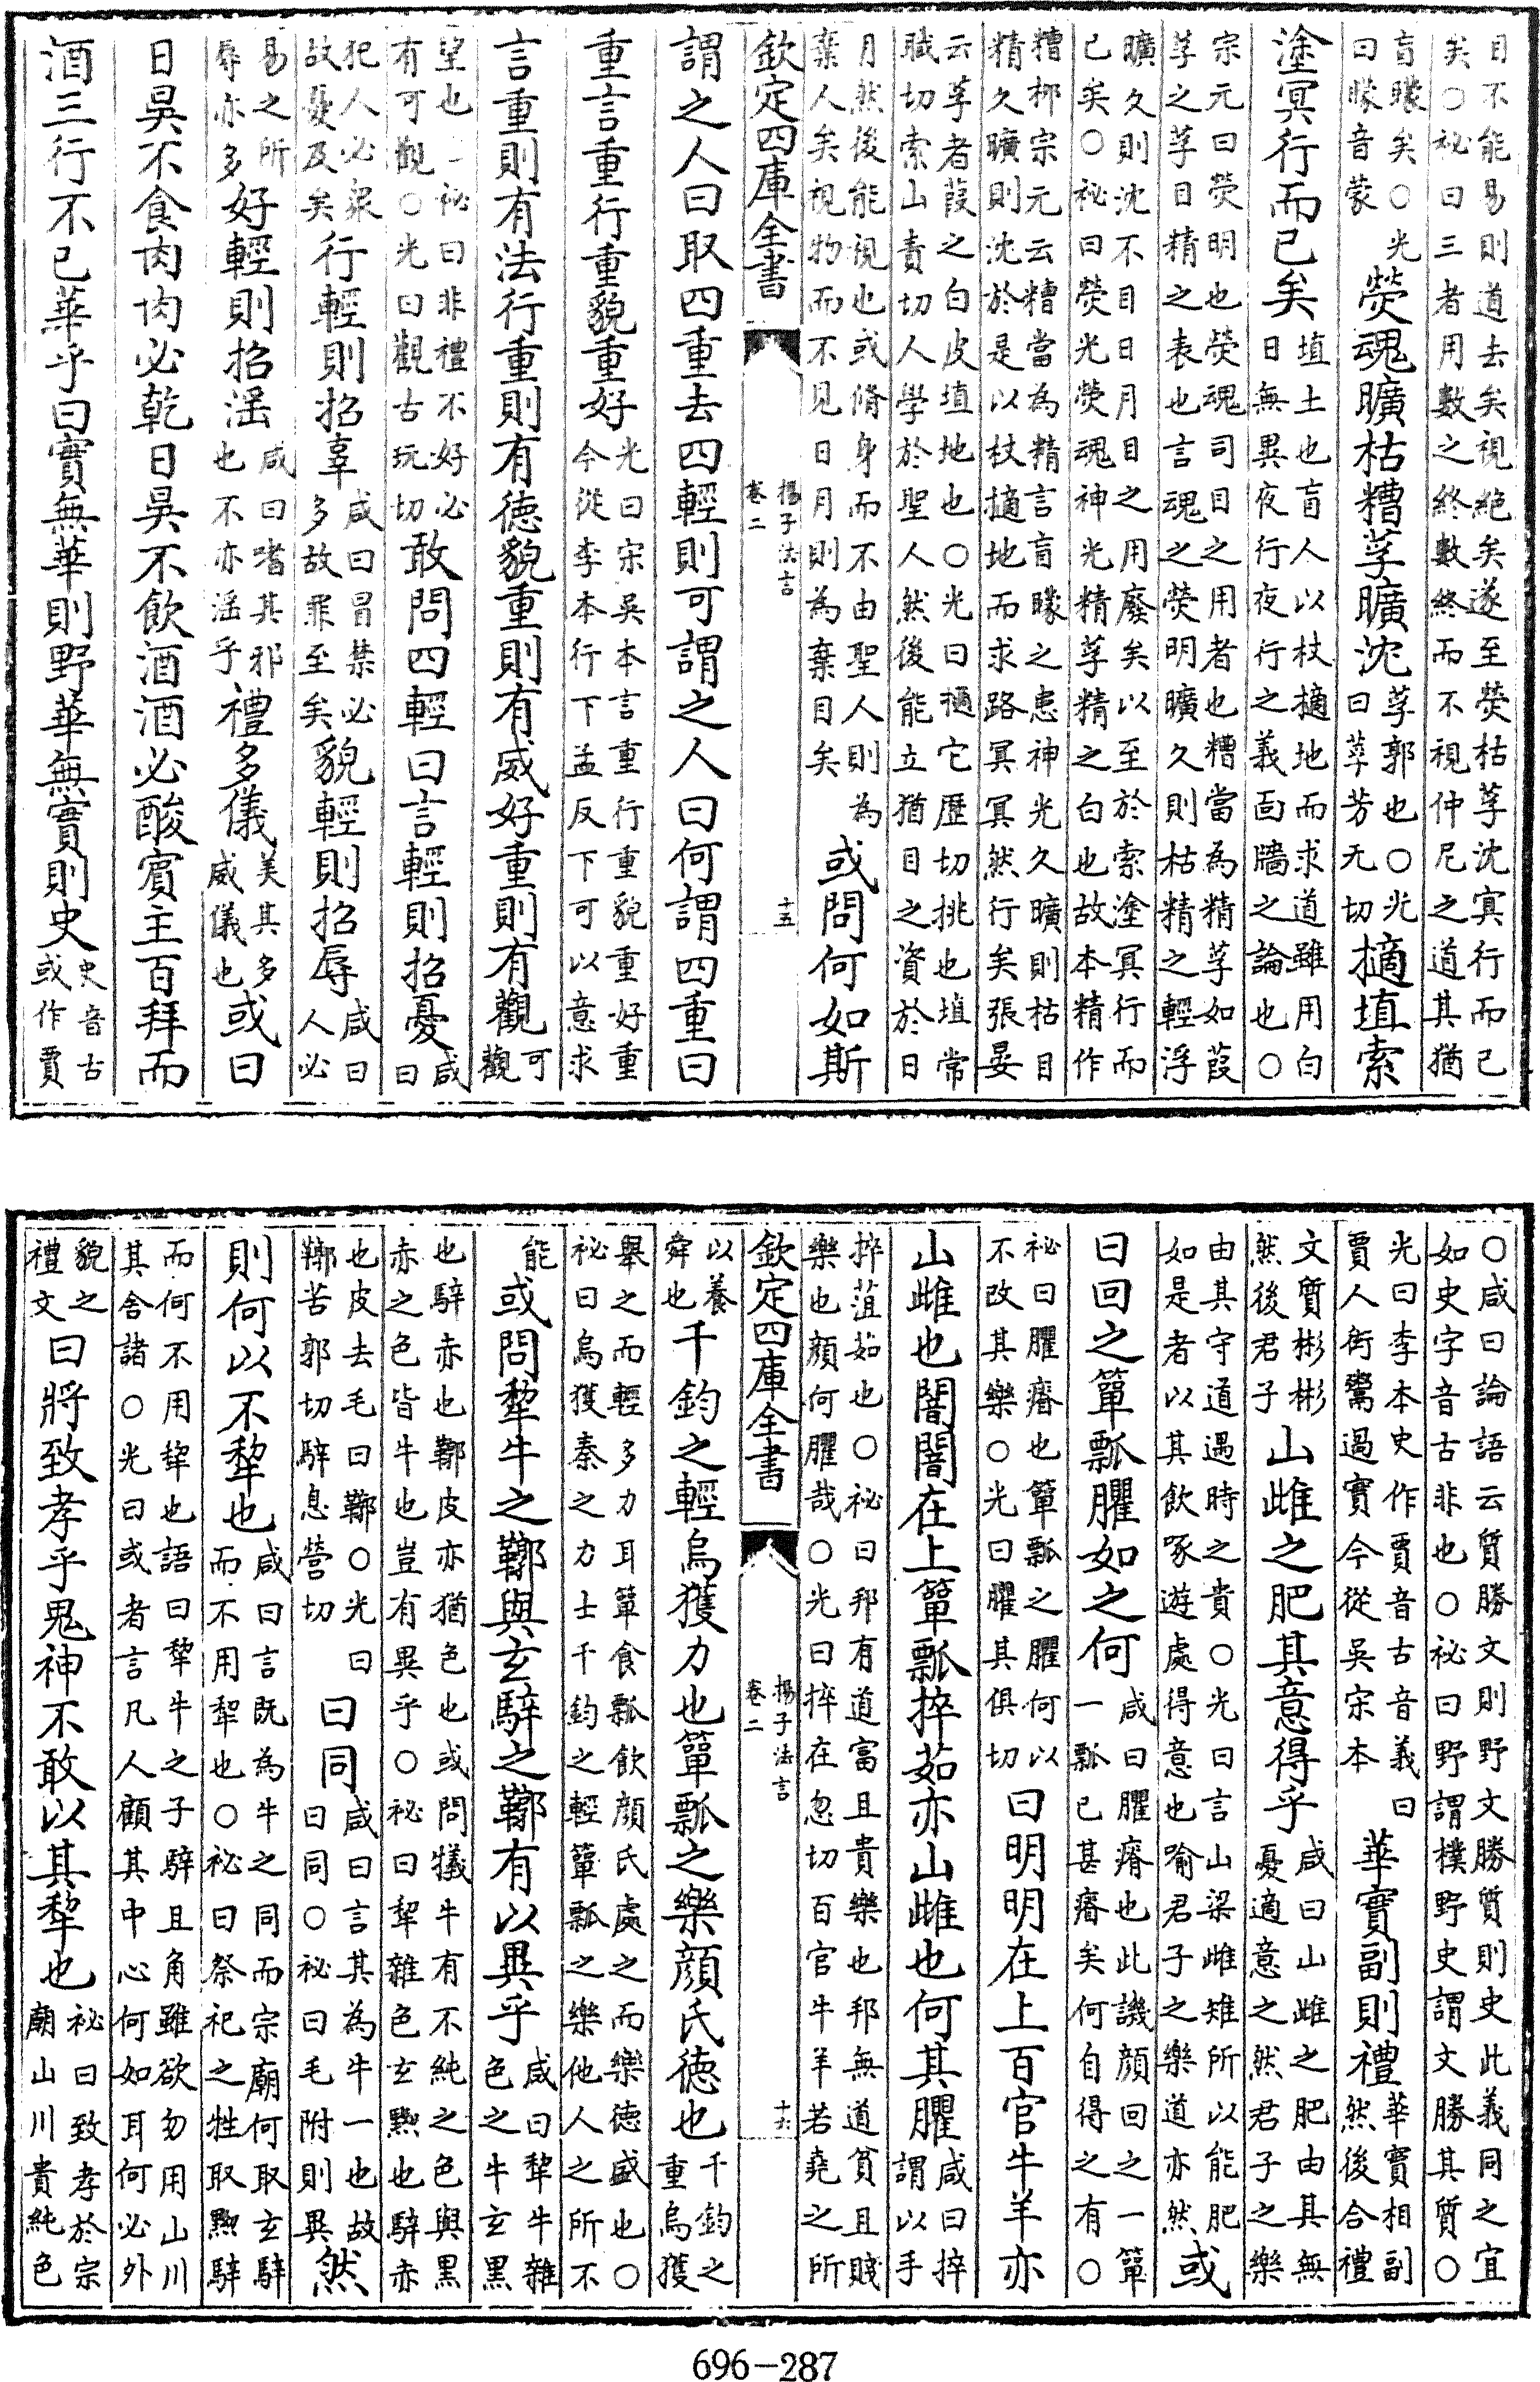 目不能易則道去矣視絶矣遂至熒枯莩沈冥行而已
矣○祕曰三者用數之終數終而不視仲尼之道其猶
盲矇矣○光
曰矇音蒙
熒魂曠枯糟莩曠沈
莩郭也○光
曰莩芳无切
擿埴索
塗冥行而已矣
埴土也盲人以杖擿地而求道雖用白
日無異夜行夜行之義面牆之論也○
宗元曰熒明也熒魂司目之用者也糟當為精莩如葭
莩之莩目精之表也言魂之熒明曠久則枯精之輕浮
曠久則沈不目日月目之用廢矣以至於索塗冥行而
已矣○祕曰熒光熒魂神光精莩精之白也故本精作
糟桺宗元云糟當為精言盲矇之患神光久曠則枯目
精久曠則沈於是以杖擿地而求路冥冥然行矣張晏
云莩者葭之白皮埴地也○光曰擿它歷切挑也埴常
職切索山責切人學於聖人然後能立猶目之資於日
月然後能視也或脩身而不由聖人則為
棄人矣視物而不見日月則為棄目矣
或問何如斯
欽定四庫全書
揚子法言
卷二
十五
謂之人曰取四重去四輕則可謂之人曰何謂四重曰
重言重行重貌重好
光曰宋吳本言重行重貌重好重
今從李本行下孟反下可以意求
言重則有法行重則有德貌重則有威好重則有觀
可
觀
望也○祕曰非禮不好必
有可觀○光曰觀古玩切
敢問四輕曰言輕則招憂
咸
曰
犯人必衆
故憂及矣
行輕則招辜
咸曰冒禁必
多故罪至矣
貌輕則招辱
咸曰
人必
易之所
辱亦多
好輕則招淫
咸曰嗜其邪
也不亦淫乎
禮多儀
美其多
威儀也
或曰
日昃不食肉肉必乾日昃不飲酒酒必酸賓主百拜而
酒三行不已華乎曰實無華則野華無實則史
史音古
或作賈
○咸曰論語云質勝文則野文勝質則史此義同之宜
如史字音古非也○祕曰野謂樸野史謂文勝其質○
光曰李本史作賈音古音義曰
賈人衒鬻過實今從吳宋本
華實副則禮
華實相副
然後合禮
文質彬彬
然後君子
山雌之肥其意得乎
咸曰山雌之肥由其無
憂適意之然君子之樂
由其守道遇時之貴○光曰言山梁雌雉所以能肥
如是者以其飲啄遊處得意也喻君子之樂道亦然
或
曰回之簞瓢臞如之何
咸曰臞瘠也此譏顔回之一簞
一瓢已甚瘠矣何自得之有○
祕曰臞瘠也簞瓢之臞何以
不改其樂○光曰臞其俱切
曰明明在上百官牛羊亦
山雌也闇闇在上簞瓢捽茹亦山雌也何其臞
咸曰捽
謂以手
捽葅茹也○祕曰邦有道富且貴樂也邦無道貧且賤
樂也顔何臞哉○光曰捽在忽切百官牛羊若堯之所
欽定四庫全書
揚子法言
卷二
十六
以養
舜也
千鈞之輕烏獲力也簞瓢之樂顔氏德也
千鈞之
重烏獲
舉之而輕多力耳簞食瓢飲顔氏處之而樂德盛也○
祕曰烏獲秦之力士千鈞之輕簞瓢之樂他人之所不
能
或問犂牛之鞹與玄騂之鞹有以異乎
咸曰犂牛雜
色之牛玄黑
也騂赤也鞹皮亦猶色也或問犠牛有不純之色與黑
赤之色皆牛也豈有異乎○祕曰犂雜色玄黑也騂赤
也皮去毛曰鞹○光曰
鞹苦郭切騂息營切
曰同
咸曰言其為牛一也故
曰同○祕曰毛附則異
然
則何以不犂也
咸曰言既為牛之同而宗廟何取玄騂
而不用犂也○祕曰祭祀之牲取黑騂
而何不用犂也語曰犂牛之子騂且角雖欲勿用山川
其舍諸○光曰或者言凡人顧其中心何如耳何必外
貌之
禮文
曰將致孝乎鬼神不敢以其犂也
祕曰致孝於宗
廟山川貴純色
696-287